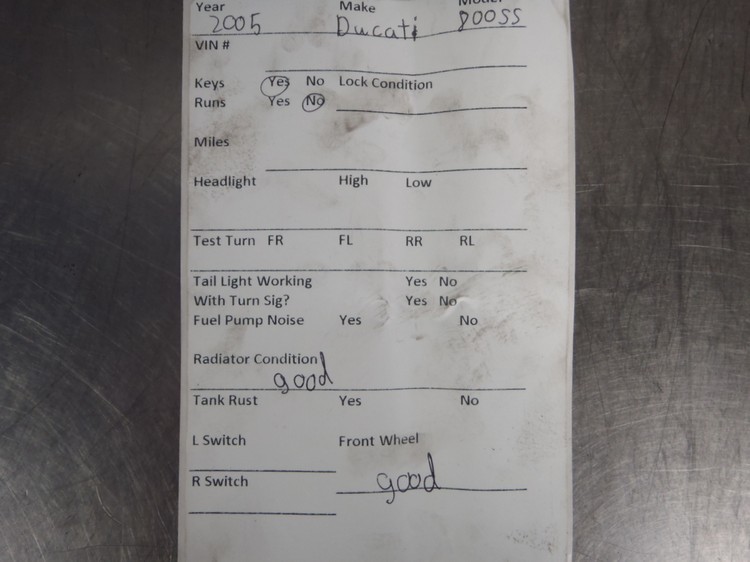 Year Make Model
2005 Ducati 800SS
VIN #
Keys Yes No Lock Condition
Runs Yes No
Miles
Headlight High Low
Test Turn FR FL RR RL
Tail Light Working Yes No
With Turn Sig? Yes No
Fuel Pump Noise Yes No
Radiator Condition
good
Tank Rust Yes No
L Switch Front Wheel
good
R Switch